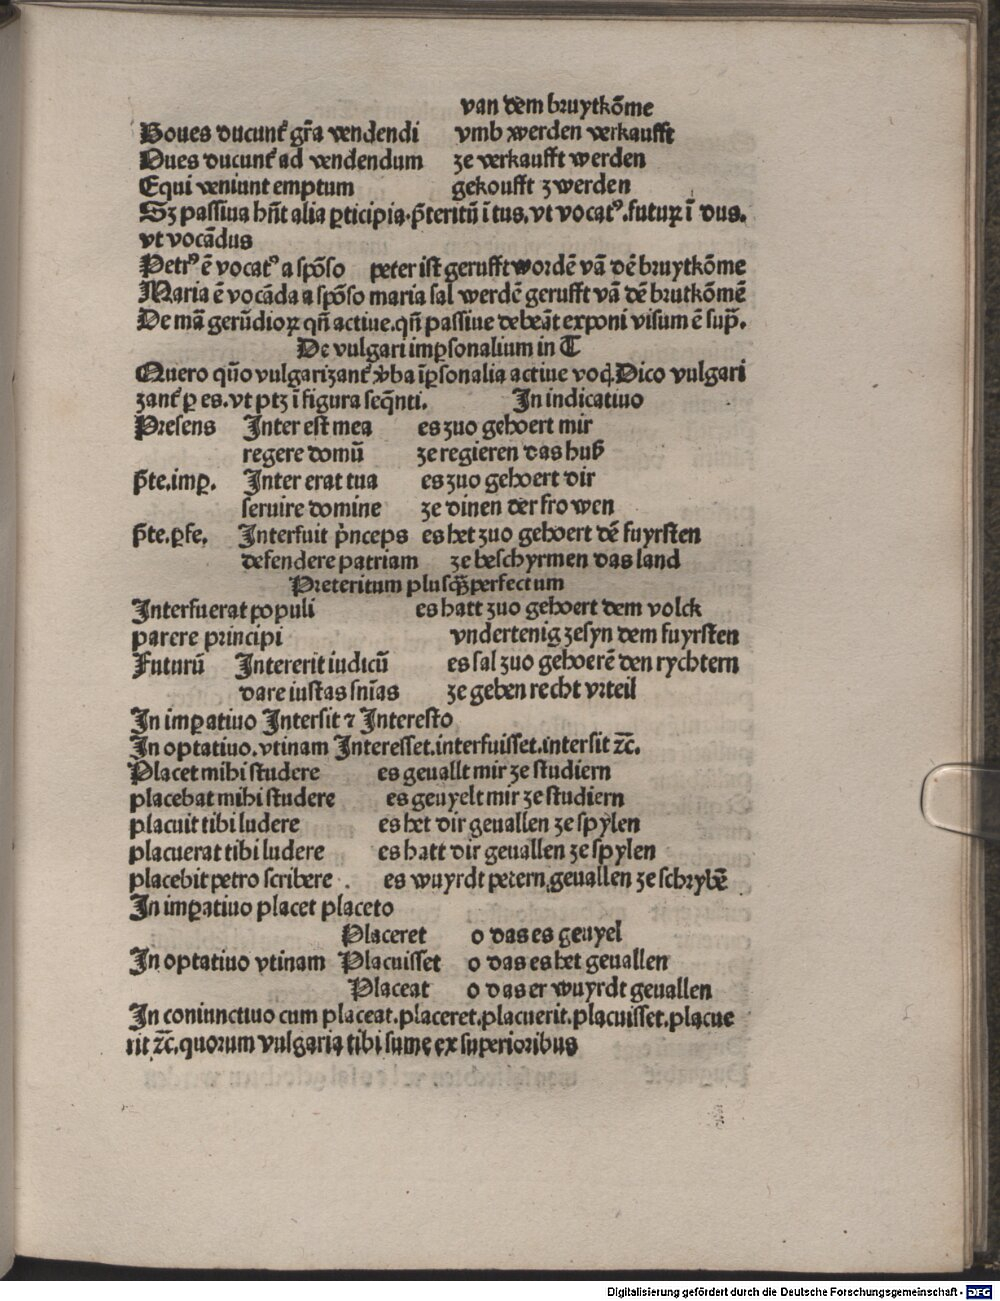 van dem bruytkōme
Boues ducunt᷑ gr̄a vendendi vmb xwerden verkaufft
Oues ducunt᷑ ad vendendum ze verkaufft werden
Equi veniunt emptum gekoufft zwerden
Sꝫ passiua hn̄t alia ꝑticipia.p̄teritū ī tus.vt vocatꝰ.futuꝝ ī dus.
vt vocādus
Petrꝰ ē vocatꝰ a spōso peter ist gerufft wordē vā dē bruytkōme
Maria ē vocāda a spōso maria sal werdē gerufft vā dē brutkōmē
De mā gerūdioꝝ qn̄ actiue.qn̄ passiue debeāt exponi visum ē sup̄.
De vulgari imꝑsonalium in T
Quero quō vulgarizant᷑ v̄ba īꝑsonalia actiue voc̄.Dico vulgari
zant᷑ ꝑ es.vt ptꝫ ī figura seq̄nti. In indicatiuo
Presens Inter est mea es zuo gehoert mir
regere domū ze regieren das huß
p̄te.imꝑ. Inter erat tua es zuo gehoert dir
seruire domine ze dinen der fro wen
p̄te.ꝑfe. Interfuit p̄nceps es het zuo gehoert dē fuyrsten
defendere patriam ze beschyrmen das land
Preteritum plusq̄ꝫperfectum
Interfuerat populi es hatt zuo gehoert dem volck
parere principi vndertenig zesyn dem fuyrsten
Futurū Intererit iudicū es sal zuo gehoerē den rychtern
dare iustas sn̄ias ze geben recht vrteil
In imꝑatiuo Intersit ⁊ Interesto
In optatiuo.vtinam Interesset.interfuisset.intersit ⁊c̄.
Placet mihi studere es geuallt mir ze studiern
placebat mihi studere es geuyelt mir ze studiern
placuit tibi ludere es het dir geuallen ze spylen
placuerat tibi ludere es hatt dir geuallen ze spylen
placebit petro scribere . es wuyrdt petern geuallen ze schrybē
In imꝑatiuo placet placeto
Placeret o das es geuyel
In optatiuo vtinam Placuisset o das es het geuallen
Placeat o das er wuyrdt geuallen
In coniunctiuo cum placeat.placeret.placuerit.placuisset.placue
rit ⁊c̄.quorum vulgaria tibi sume ex superioribus
Digitalisierung gefördert durch die Deutsche Forschungsgemeinschaft - DFG